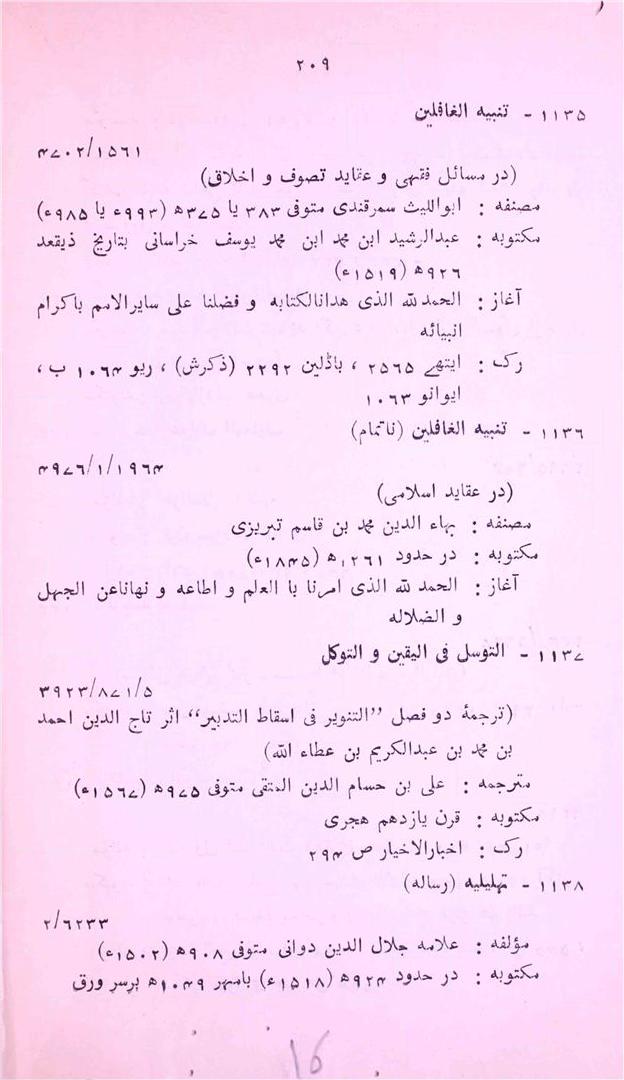 ۲۰۹
۱۱۳۵ - تنبیه الغافلین
۴۷۰۲/۱۵۶۱
(در مسائل فقہی و عقاید تصوف و اخلاق)
مصنفه : ابواللیث سمرقندی متوفی ۳۸۳ یا ۳۷۵ھ (۹۹۳ء یا ۹۸۵ء)
مکتوبه : عبدالرشید ابن محمد ابن محمد یوسف خراسانی بتاریخ ذیقعد
۹۲۶ھ (۱۵۱۹ء)
آغاز : الحمدلله الذی هدانالکتابه و فضلنا علی سایرالامم باکرام
انبیائه
رک : ایتھے ۲۵۶۵ ، باڈلین ۲۲۹۲ (ذکرش) ، ریو ۱۰۶۴ ب ،
ایوانو ۱۰۶۳
۱۱۳۶ - تنبیه الغافلین (ناتمام)
۴۹۷۶/۱/۱۹۶۴
(در عقاید اسلامی)
مصنفه : بہاء الدین محمد بن قاسم تبریزی
مکتوبه : در حدود ۱۲۶۱ھ (۱۸۴۵ء)
آغاز : الحمد لله الذی امرنا با العلم و اطاعه و نهاناعن الجہل
و الضلاله
۱۱۳۷ - التوسل فی الیقین و التوکل
۳۹۲۳/۸۷۱/۵
(ترجمۀ دو فصل ”التنویر فی اسقاط التدبیر“ اثر تاج الدین احمد
بن محمد بن عبدالکریم بن عطاء الله)
مترجمه : علی بن حسام الدین المتقی متوفی ۹۷۵ھ (۱۵۶۷ء)
مکتوبه : قرن یازدهم هجری
رک : اخبارالاخیار ص ۲۹۴
۱۱۳۸ - تہلیلیه (رساله)
۲/۶۲۳۳
مؤلفه : علامه جلال الدین دوانی متوفی ۹۰۸ھ (۱۵۰۲ء)
مکتوبه : در حدود ۹۲۴ھ (۱۵۱۸ء) بامہر ۱۰۴۹ھ برسر ورق
16